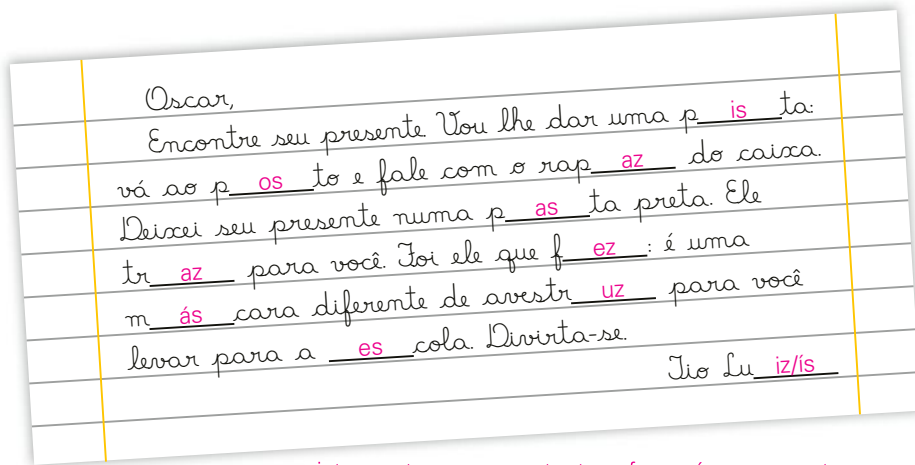 Oscar,
Encontre seu presente. Vou lhe dar uma p is ta:
vá ao p os to e fale com o rap az do caixa.
Deixei seu presente numa p as ta preta. Ele
tr az para você. Foi ele que f ez : é uma
m ás cara diferente de avestr uz para você
levar para a es cola. Divirta-se.
Tio Lu iz/ís